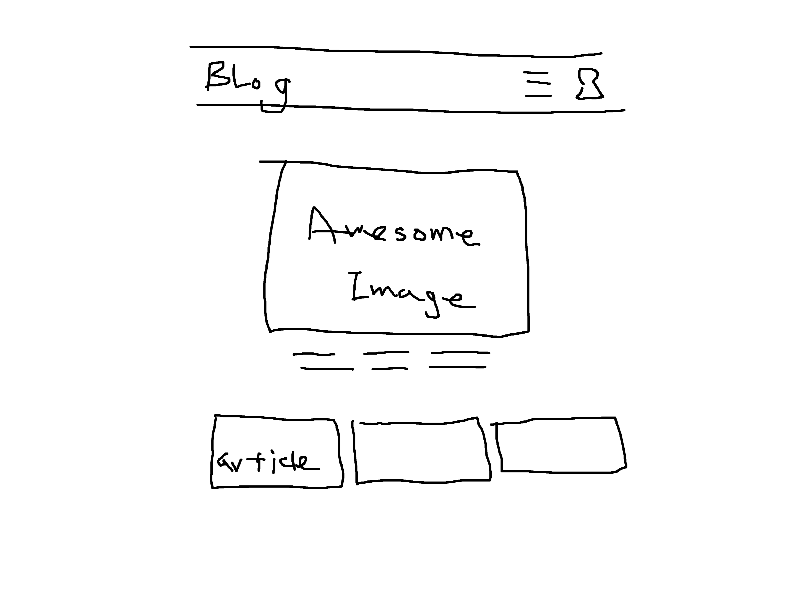 BLog
Awesome
Image
article